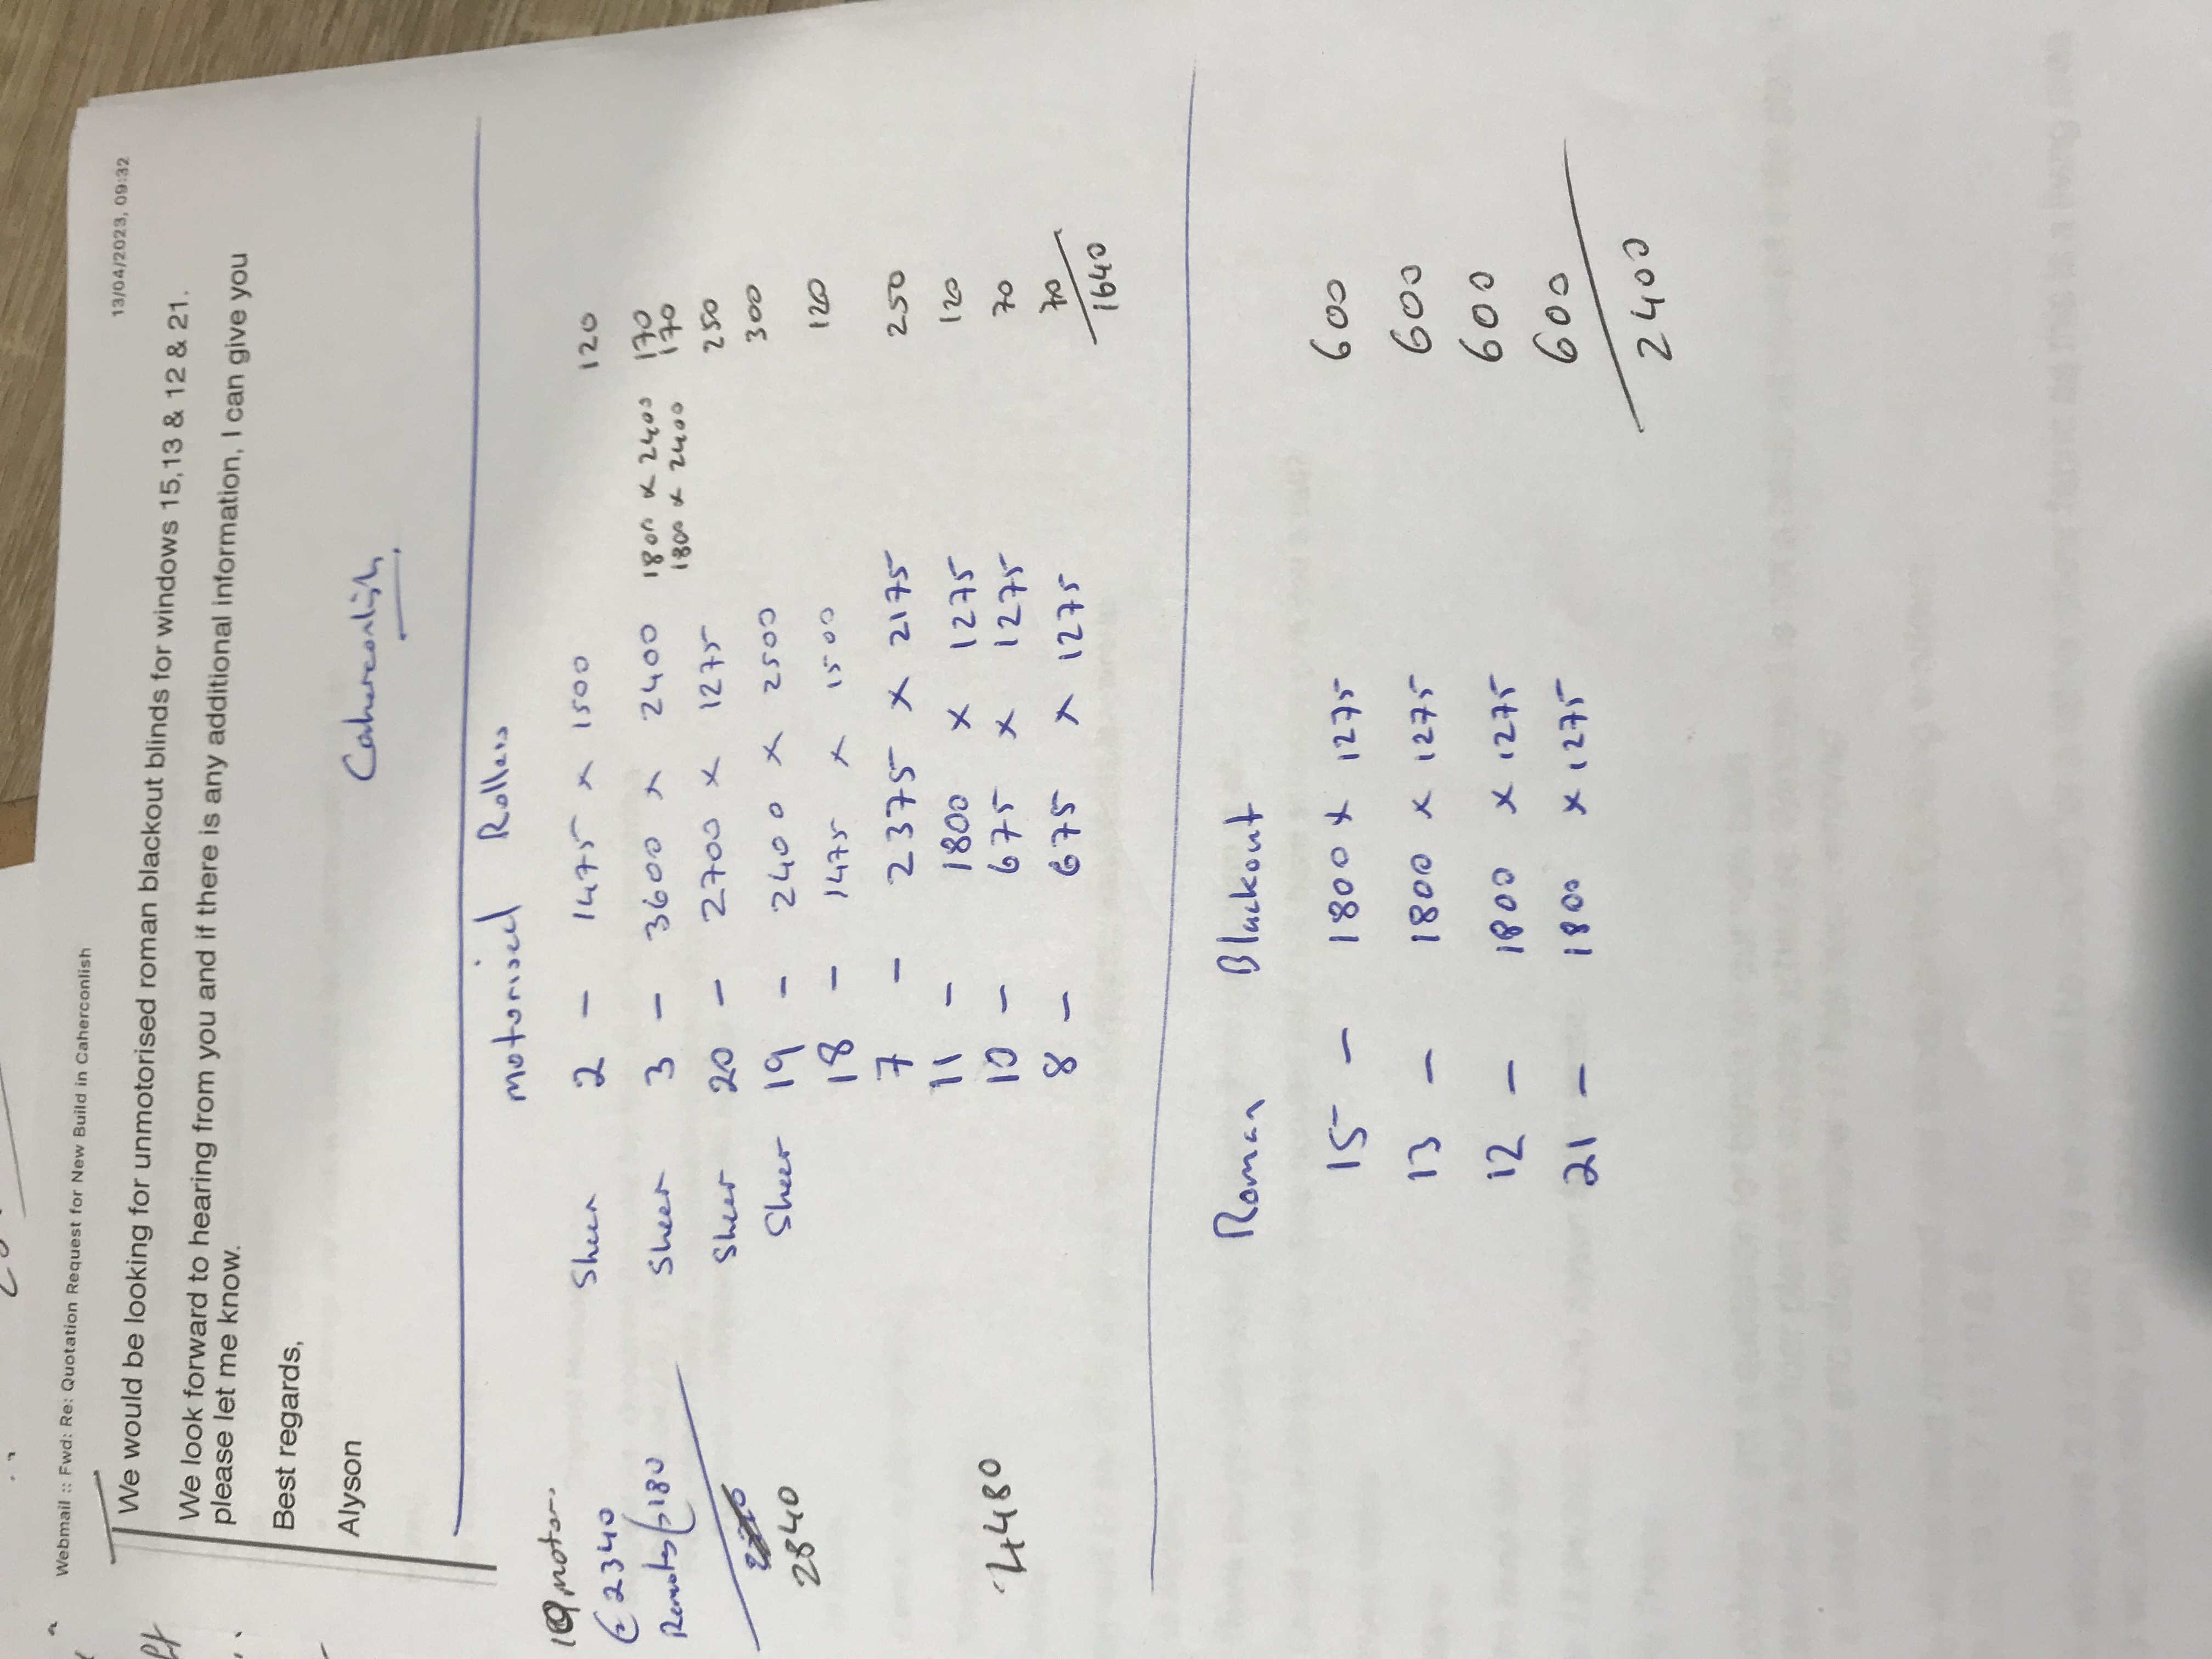 Webmail :: Fwd: Re: Quotation Request for New Build in Caherconlish 13/04/2023, 09:32
We would be looking for unmotorised roman blackout blinds for windows 15,13 & 12 & 21.
We look forward to hearing from you and if there is any additional information, I can give you
please let me know.
Best regards,
Alyson
Caherconlish
motorised Rollers
Sheer 2 - 1475 x 1500 120
Sheer 3 - 3600 x 2400 1800 x 2400 170
1800 x 2400 170
Sheer 20 - 2700 x 1275 250
Sheer 19 - 2400 x 2500 300
18 - 1475 x 1500 120
7 - 2375 x 2175 250
11 - 1800 x 1275 120
10 - 675 x 1275 70
8 - 675 x 1275 70
1640
motors
€ 2340
Remotes € 180
2840
4480
Roman Blackout
15 - 1800 x 1275 600
13 - 1800 x 1275 600
12 - 1800 x 1275 600
21 - 1800 x 1275 600
2400